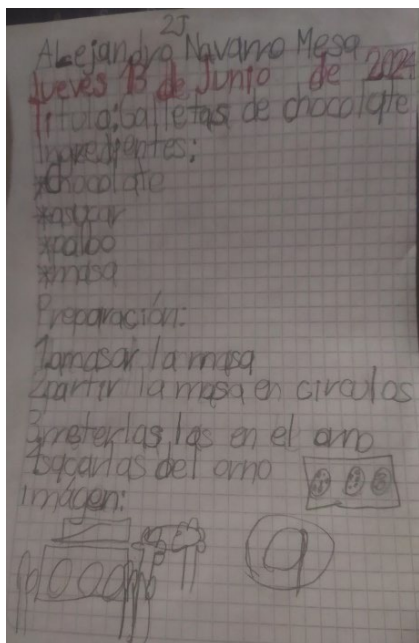 2J
Alejandro Navarro Mesa
Jueves 13 de Junio de 2024
Titulo: galletas de chocolate
Ingredientes:
*chocolate
*asucar
*palbo
*masa
Preparación:
1amasar la masa
2partir la masa en circulos
3meterlas las en el orno
4sacarlas del orno
imágen:
9